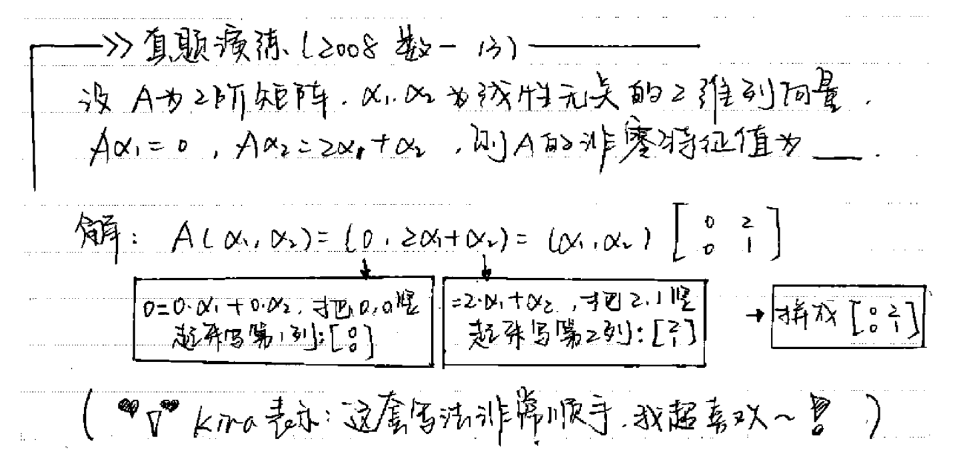 →>> 真题演练 (2008 数一 13)
设 A为2阶矩阵, α₁, α₂为线性无关的2维列向量,
Aα₁=0, Aα₂=2α₁+α₂, 则A的非零特征值为 ___.
解: A(α₁, α₂)=(0, 2α₁+α₂)=(α₁, α₂) [0 2; 0 1]
0=0·α₁+0·α₂, 把0,0竖
起来写第1列: [0; 0]
=2·α₁+α₂, 把2,1竖
起来写第2列: [2; 1]
→ 拼成 [0 2; 0 1]
(♥∇♥ kira表示: 这套写法非常顺手, 我超喜欢~ ! )